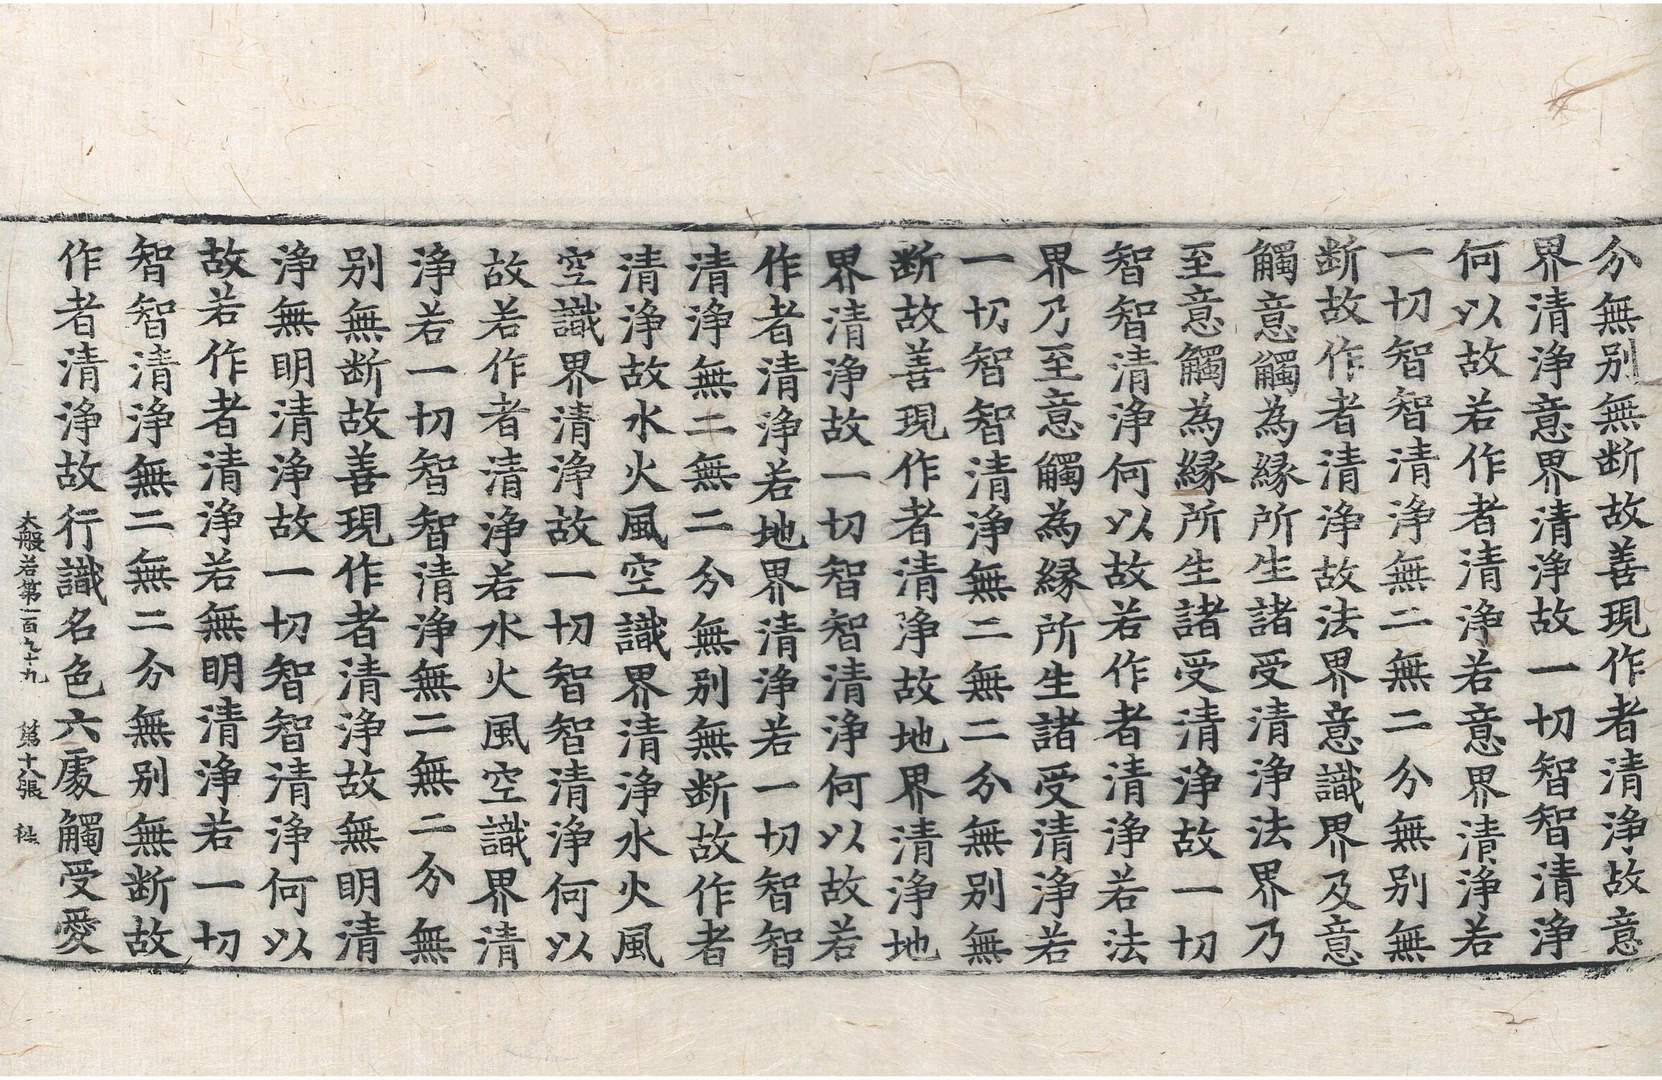 分無别無断故善現作者清浄故意
界清浄意界清浄故一切智智清浄
何以故若作者清浄若意界清浄若
一切智智清浄無二無二分無别無
断故作者清浄故法界意識界及意
觸意觸為縁所生諸受清浄法界乃
至意觸為縁所生諸受清浄故一切
智智清浄何以故若作者清浄若法
界乃至意觸為縁所生諸受清浄若
一切智智清浄無二無二分無别無
断故善現作者清浄故地界清浄地
界清浄故一切智智清浄何以故若
作者清浄若地界清浄若一切智智
清浄無二無二分無别無断故作者
清浄故水火風空識界清浄水火風
空識界清浄故一切智智清浄何以
故若作者清浄若水火風空識界清
浄若一切智智清浄無二無二分無
别無断故善現作者清浄故無明清
浄無明清浄故一切智智清浄何以
故若作者清浄若無明清浄若一切
智智清浄無二無二分無别無断故
作者清浄故行識名色六處觸受愛
大般若第一百九十九 第十八張